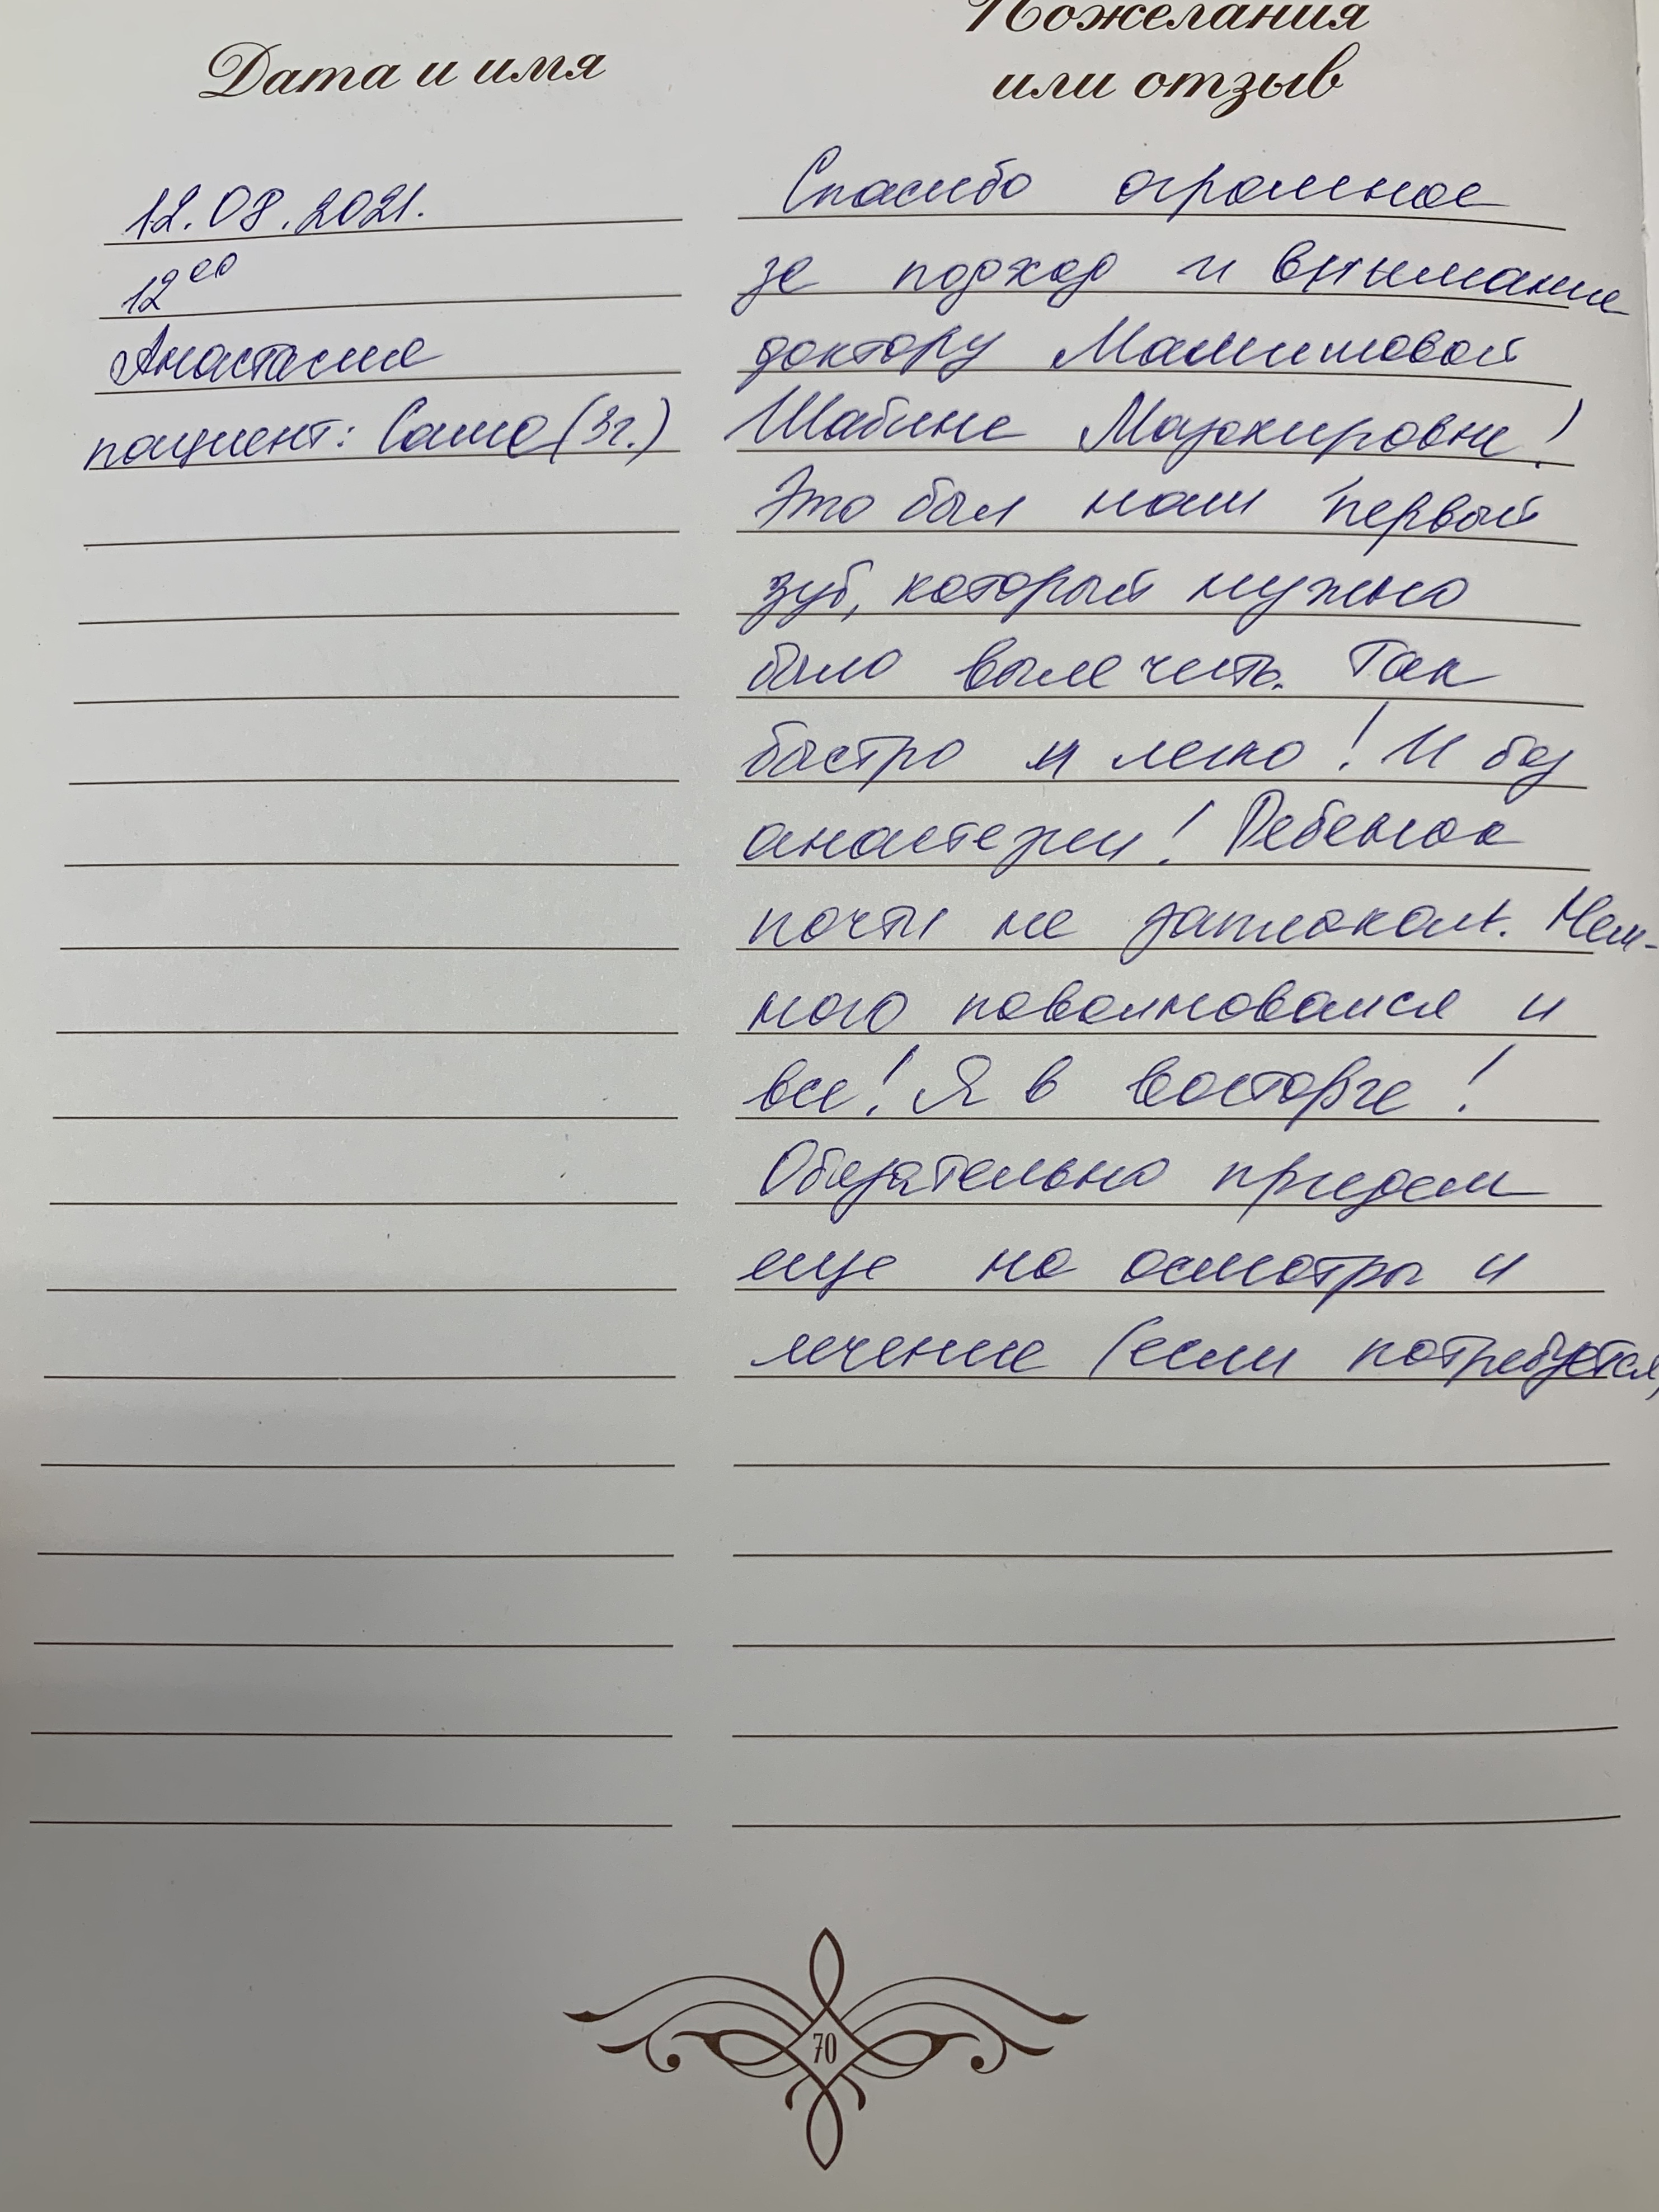 Дата и имя
Пожелания
или отзыв
12.08.2021.
12⁰⁰
Анастасия
пациент: Саша (3г.)
Спасибо огромное
за подход и внимание
доктору
Шабине !
Это был наш первый
зуб, который нужно
было вылечить. Так
быстро и легко! И без
анастезии! Ребенок
почти не заплакал. Нем-
ного поволновался и
все! Я в восторге!
Обязательно придем
еще на осмотры и
лечение (если потребуется)
70